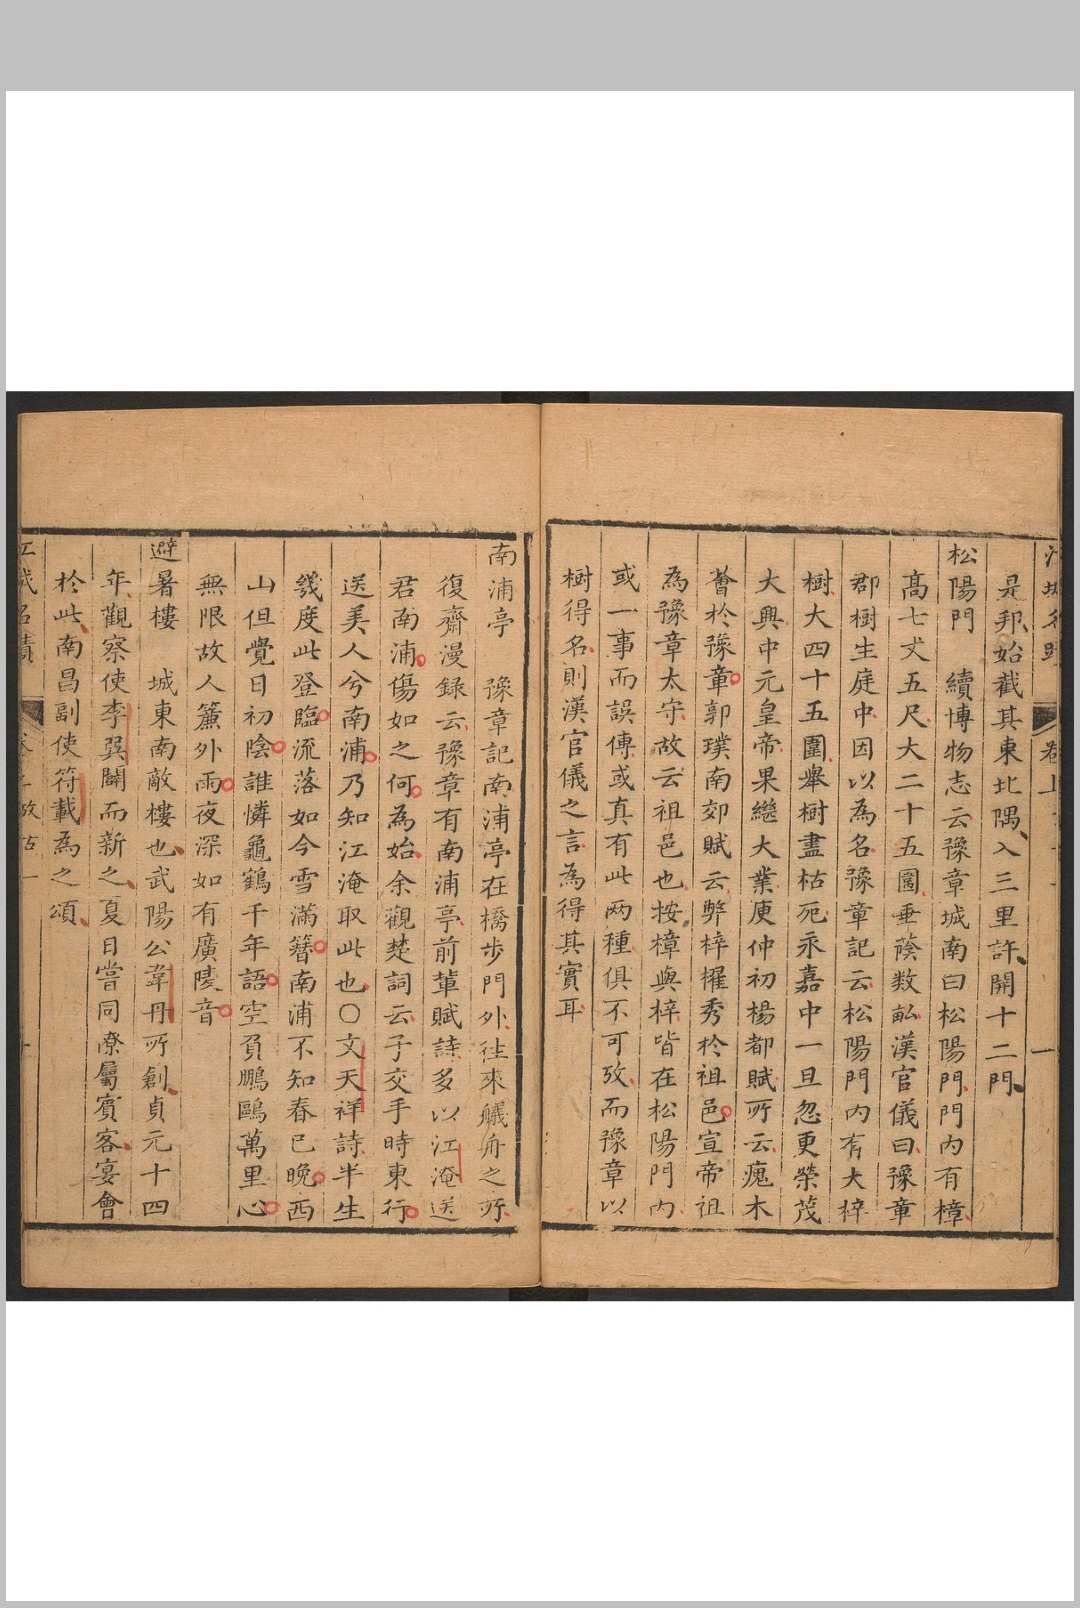 是邦始截其東北隅入三里許開十二門
松陽門　續博物志云豫章城南曰松陽門門內有樟
高七丈五尺大二十五圍垂蔭数畝漢官儀曰豫章
郡樹生庭中因以為名豫章記云松陽門內有大梓
樹大四十五圍舉樹盡枯死永嘉中一旦忽更榮茂
大興中元皇帝果繼大業庾仲初楊都賦所云瘣木
薈於豫章郭璞南郊賦云弊梓擢秀於祖邑宣帝祖
為豫章太守故云祖邑也按樟與梓皆在松陽門內
或一事而誤傳或真有此兩種俱不可攷而豫章以
樹得名則漢官儀之言為得其實耳
南浦亭　豫章記南浦亭在橋步門外往來艤舟之所
復齋漫録云豫章有南浦亭前輩賦詩多以江淹送
君南浦傷如之何為始余觀楚詞云子交手時東行
送美人兮南浦乃知江淹取此也〇文天祥詩半生
幾度此登臨流落如今雪滿簪南浦不知春已晚西
山但覺日初陰誰憐龜鶴千年語空負鵬鷗萬里心
無限故人簾外雨夜深如有廣陵音
避暑樓　城東南敵樓也武陽公韋丹所創貞元十四
年觀察使李巽闢而新之夏日嘗同僚屬賓客宴會
於此南昌副使符載為之頌